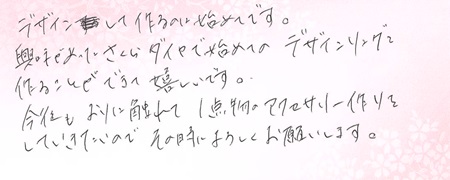 デザインして作るのは始めてです。
興味があったさくらダイヤで始めてのデザインリングを
作ることができて嬉しいです。
今後もおりに触れて1点物のアクセサリー作りを
していきたいのでその時によろしくお願いします。